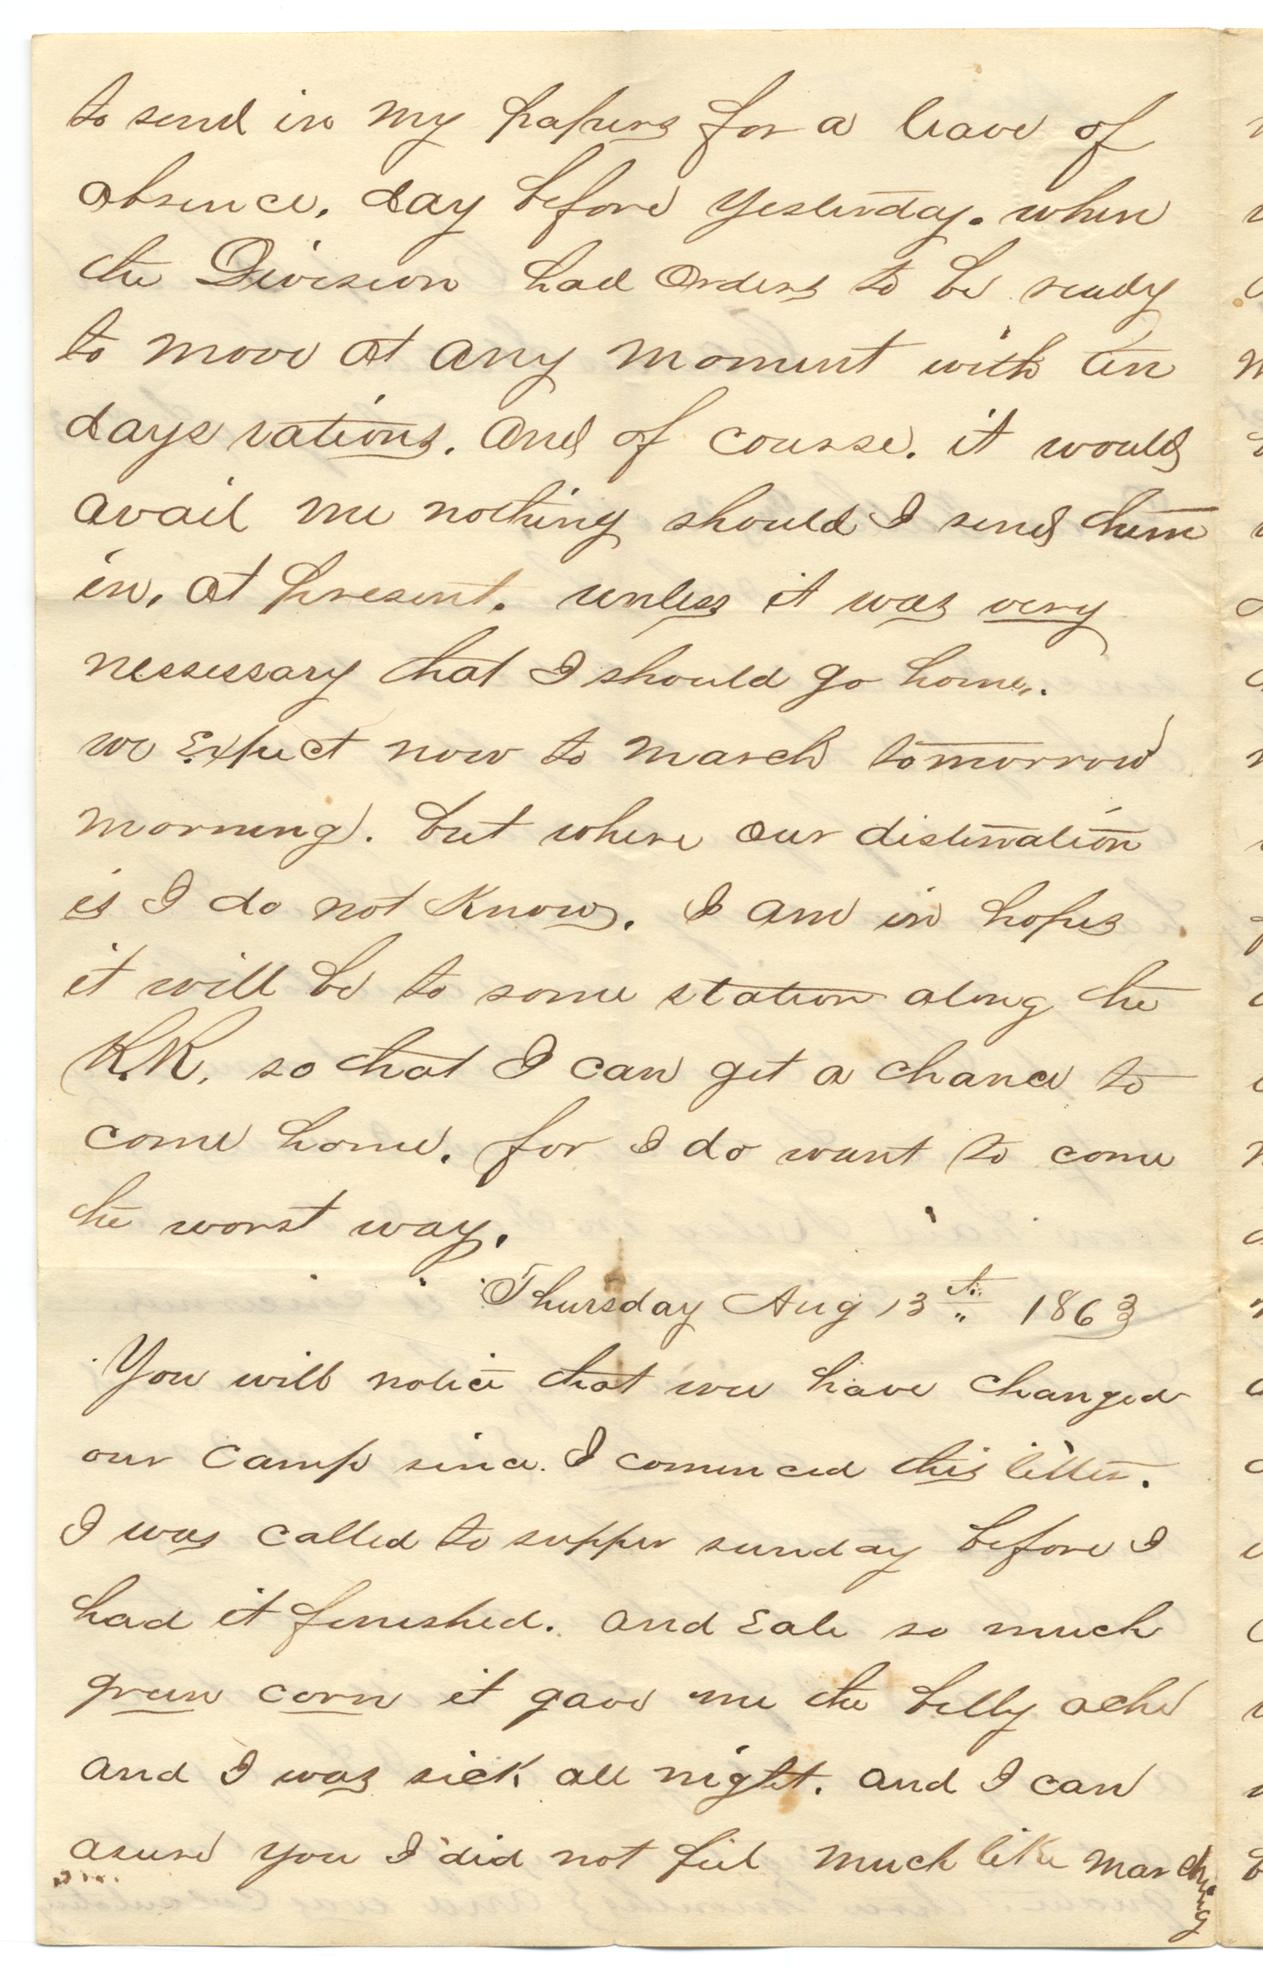 to send in my papers for a leave of
absence. day before yesterday. when
the Division had orders to be ready
to move at any moment with ten
days rations. And of course. it would
avail me nothing should I send them
in, at present. unless it was very
nessessary that I should go home.
we Expect now to march tomorrow
morning. but where our distenation
is I do not Know. I am in hopes
it will be to some station along the
R.R. so that I can get a chance to
come home. for I do want to come
the worst way.
Thursday Aug 13th 1863
You will notice that we have changed
our Camp since I comenced this letter.
I was called to supper sunday before I
had it finished. and Eate so much
green corn it gave me the belly ache
and I was sick all night. and I can
asure you I did not feel much like marching